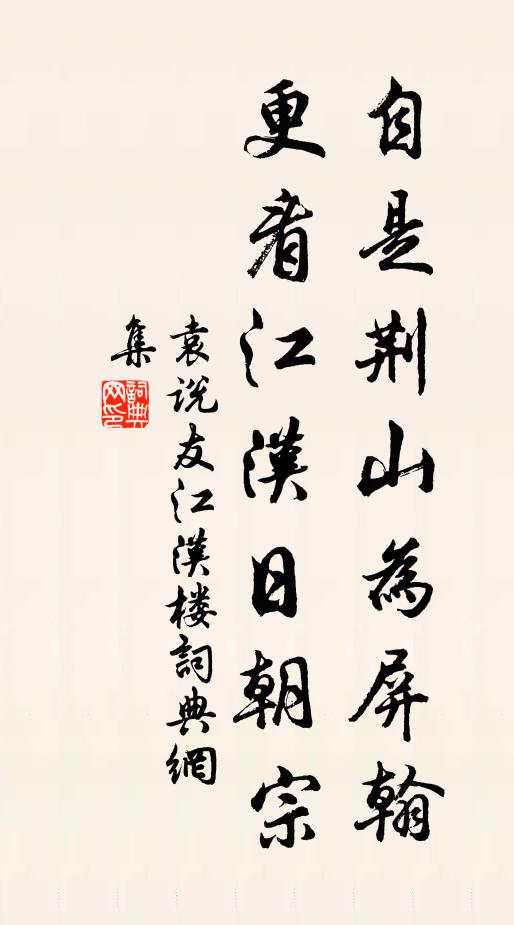 自是荆山為屏翰
更看江漢日朝宗
袁说友江漢楼詞典網
集
詞典網印